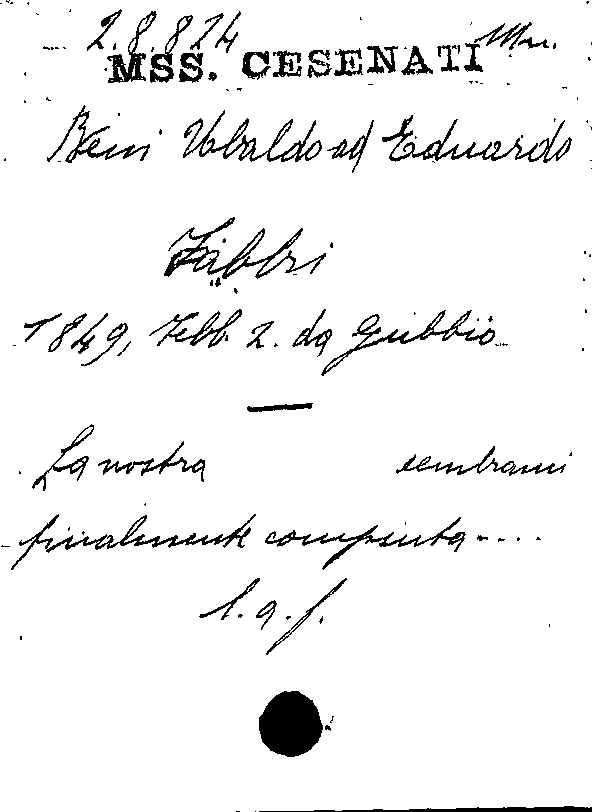 2.8.824
MSS. CESENATI
Beni Ubaldo ad Eduardo
Fabbri
1849, Febb. 2. da Gubbio
La nostra sembrami
finalmente compiuta....
l. a. f.